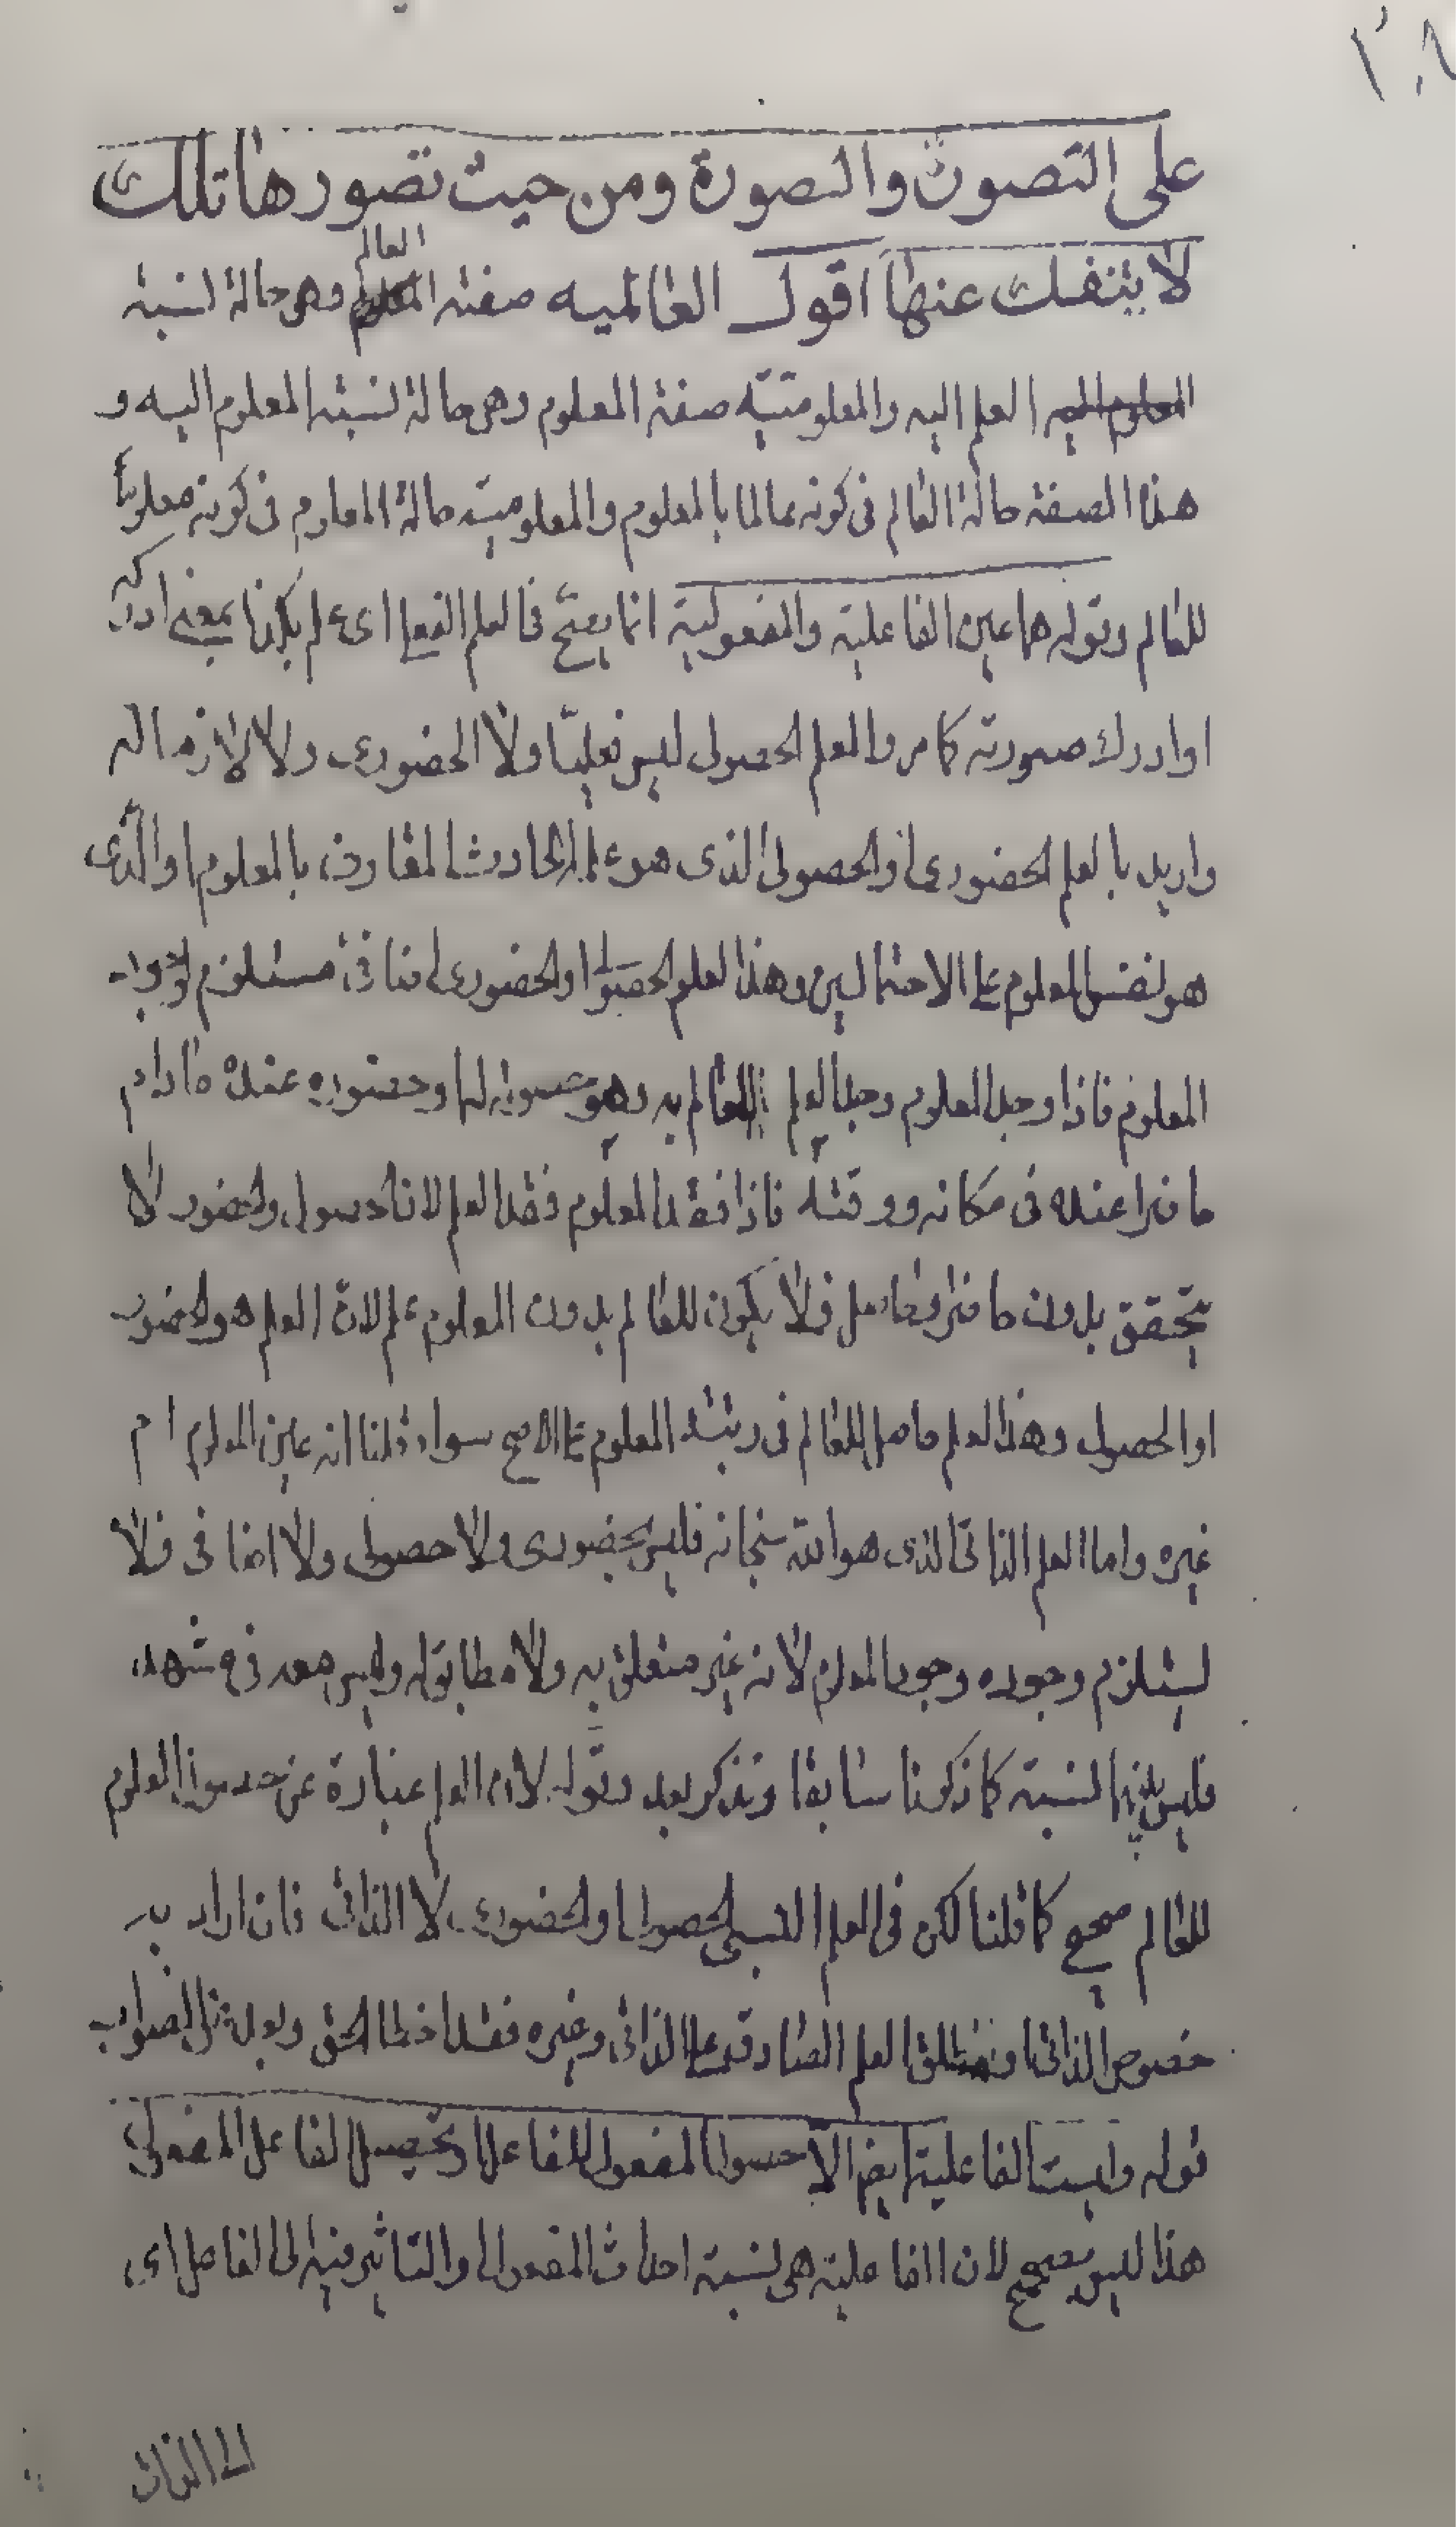 ١٠٨
على التصور والصورة ومن حيث تصورها تلك
لا ينفك عنها اقول العالميه صفته العالم وهى حالة نسبته
العلم اليه والمعلومتيّه صفة المعلوم وهى حالة نسبته المعلوم اليه و
هذا الصفة حالة العالم فى كونه عالما بالمعلوم والمعلوميته حالة المعلوم فى كونه معلوما
للعالم وقوله هما عين الفاعلية والمفعولية انما يصح فى العلم الفعلى اى علم بكذا بمعنى ادركه
او ادرك صورته كما مر والعلم الحصولى ليس فعليّا ولا الحضورى ولا لازما له
واريد بالعلم الحضورى او الحصولى الذى هو علم الحادث المقارن بالمعلوم او الذى
هو نفس المعلوم على الاحتمالين وهذا العلم الحصولى او الحضورى اضافى مستلزم لوجود
المعلوم فاذا وجد المعلوم وجد العلم للعالم به وهو حصوله لها وحضوره عنده ما دام
حاضرا عنده فى مكانه ووقته فاذا فقد المعلوم فقد العلم لان الحصول والحضور لا
يتحقق بدون حاضر وحاصل فلا يكون للعالم بدون المعلوم علم لان العلم هو الحضور
او الحصول وهذا العلم حاصل للعالم فى رتبته المعلوم على الاصح سواء قلنا انه عين المعلوم ام
غيره واما العلم الذاتى الذى هو الله سبحانه فليس بحضورى ولا حصولى ولا اضافى فلا
يستلزم وجوده وجود المعلوم لانه غير متعلق به ولا مطابق له وليس معه فى مشهد
فليس بينهما نسبته كما ذكرنا سابقا ونذكر بعد وقوله لان العلم عبارة عن حصول المعلوم
للعالم صحيح كما قلنا لكن فى العلم النسبى الحصولى او الحضورى لا الذاتى فان اراد به
خصوص الذاتى او مطلق العلم الصادق على الذاتى وغيره فقد اخطا الحق وبعد عن الصواب
قوله وليست الفاعلية ايضا الا حصول المفعول للفاعل او تحصيل الفاعل المفعول
هذا ليس بصحيح لان الفاعلية هى نسبته احداث المفعول والتاثير فيه الى الفاعل اى
الى الذات